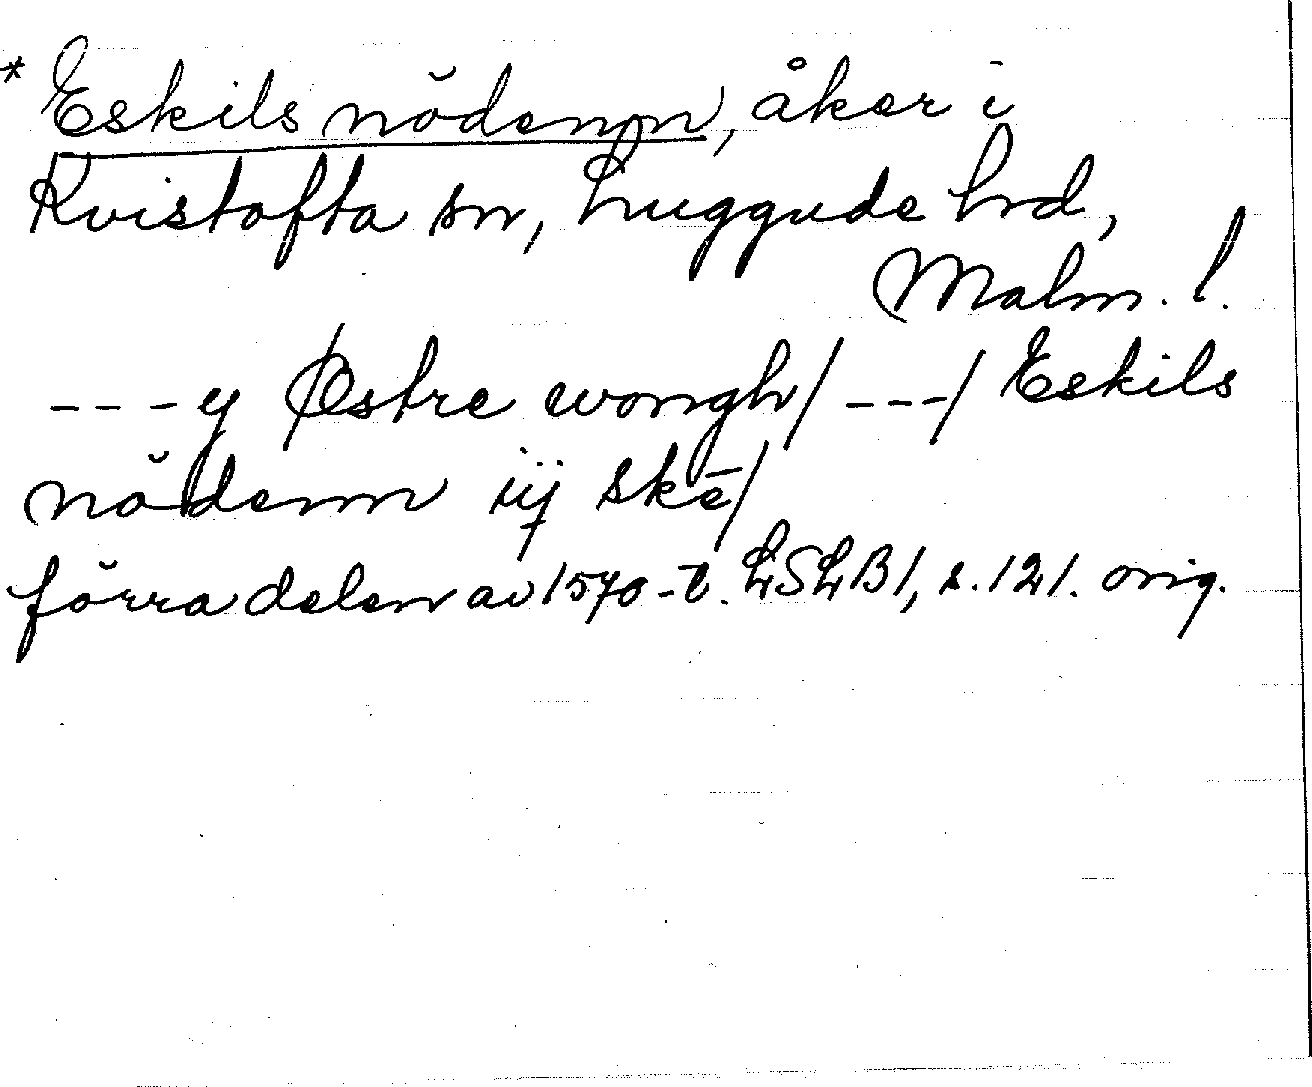 * Eskils nŏdenn, åker i
Kvistofta sn, Luggude hrd,
Malm. l.
--- y Østre wongh/ ---/ Eskils
nŏdenn iij skē/
förra delen av 1570-t. LSLB1, s. 121. orig.